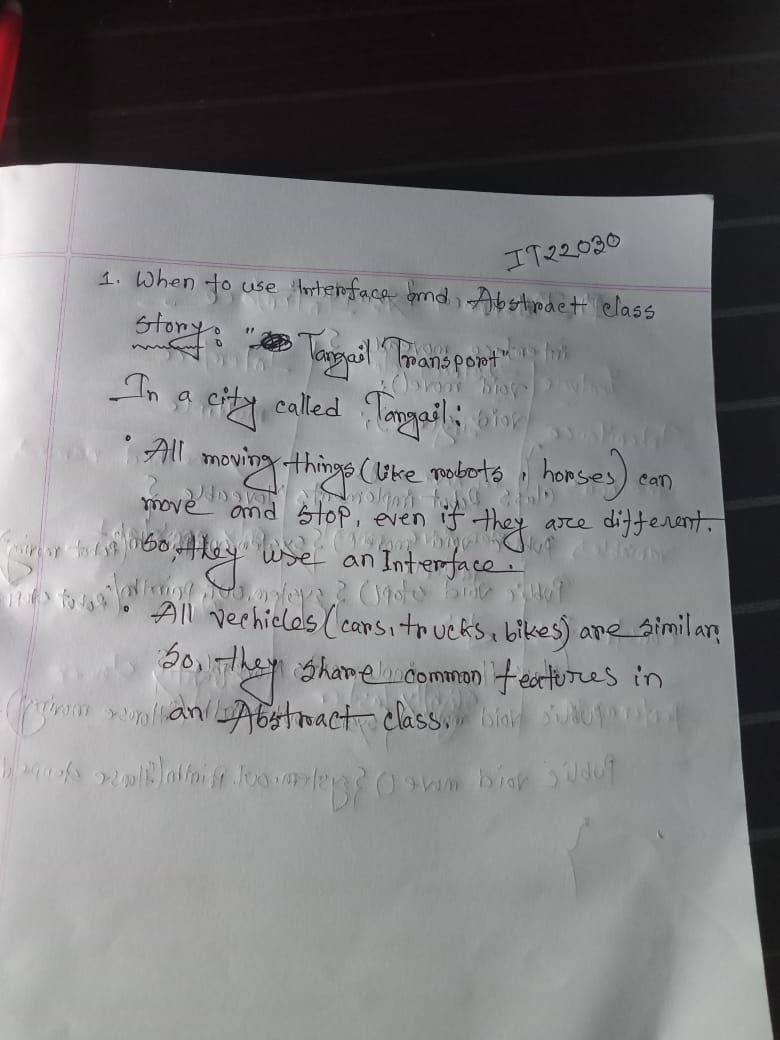 IT22030
1. When to use Interface and Abstract class
Story: " Tangail Transport"
In a city called Tangail:
• All moving things (like robots, horses) can
move and stop, even if they are different.
So, they use an Interface.
• All vechicles (cars, trucks, bikes) are similar,
So, they share common features in
an Abstract class.